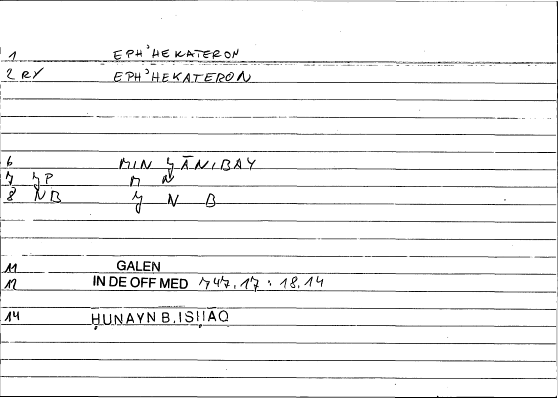 1 EPH'HEKATERON
2 RY EPH'HEKATERON
6 MIN ǦĀNIBAY
7 ǦP M N
8 NB Ǧ N B
11 GALEN
12 IN DE OFF MED 747.17 : 18.14
14 ḤUNAYN B.ISḤĀQ